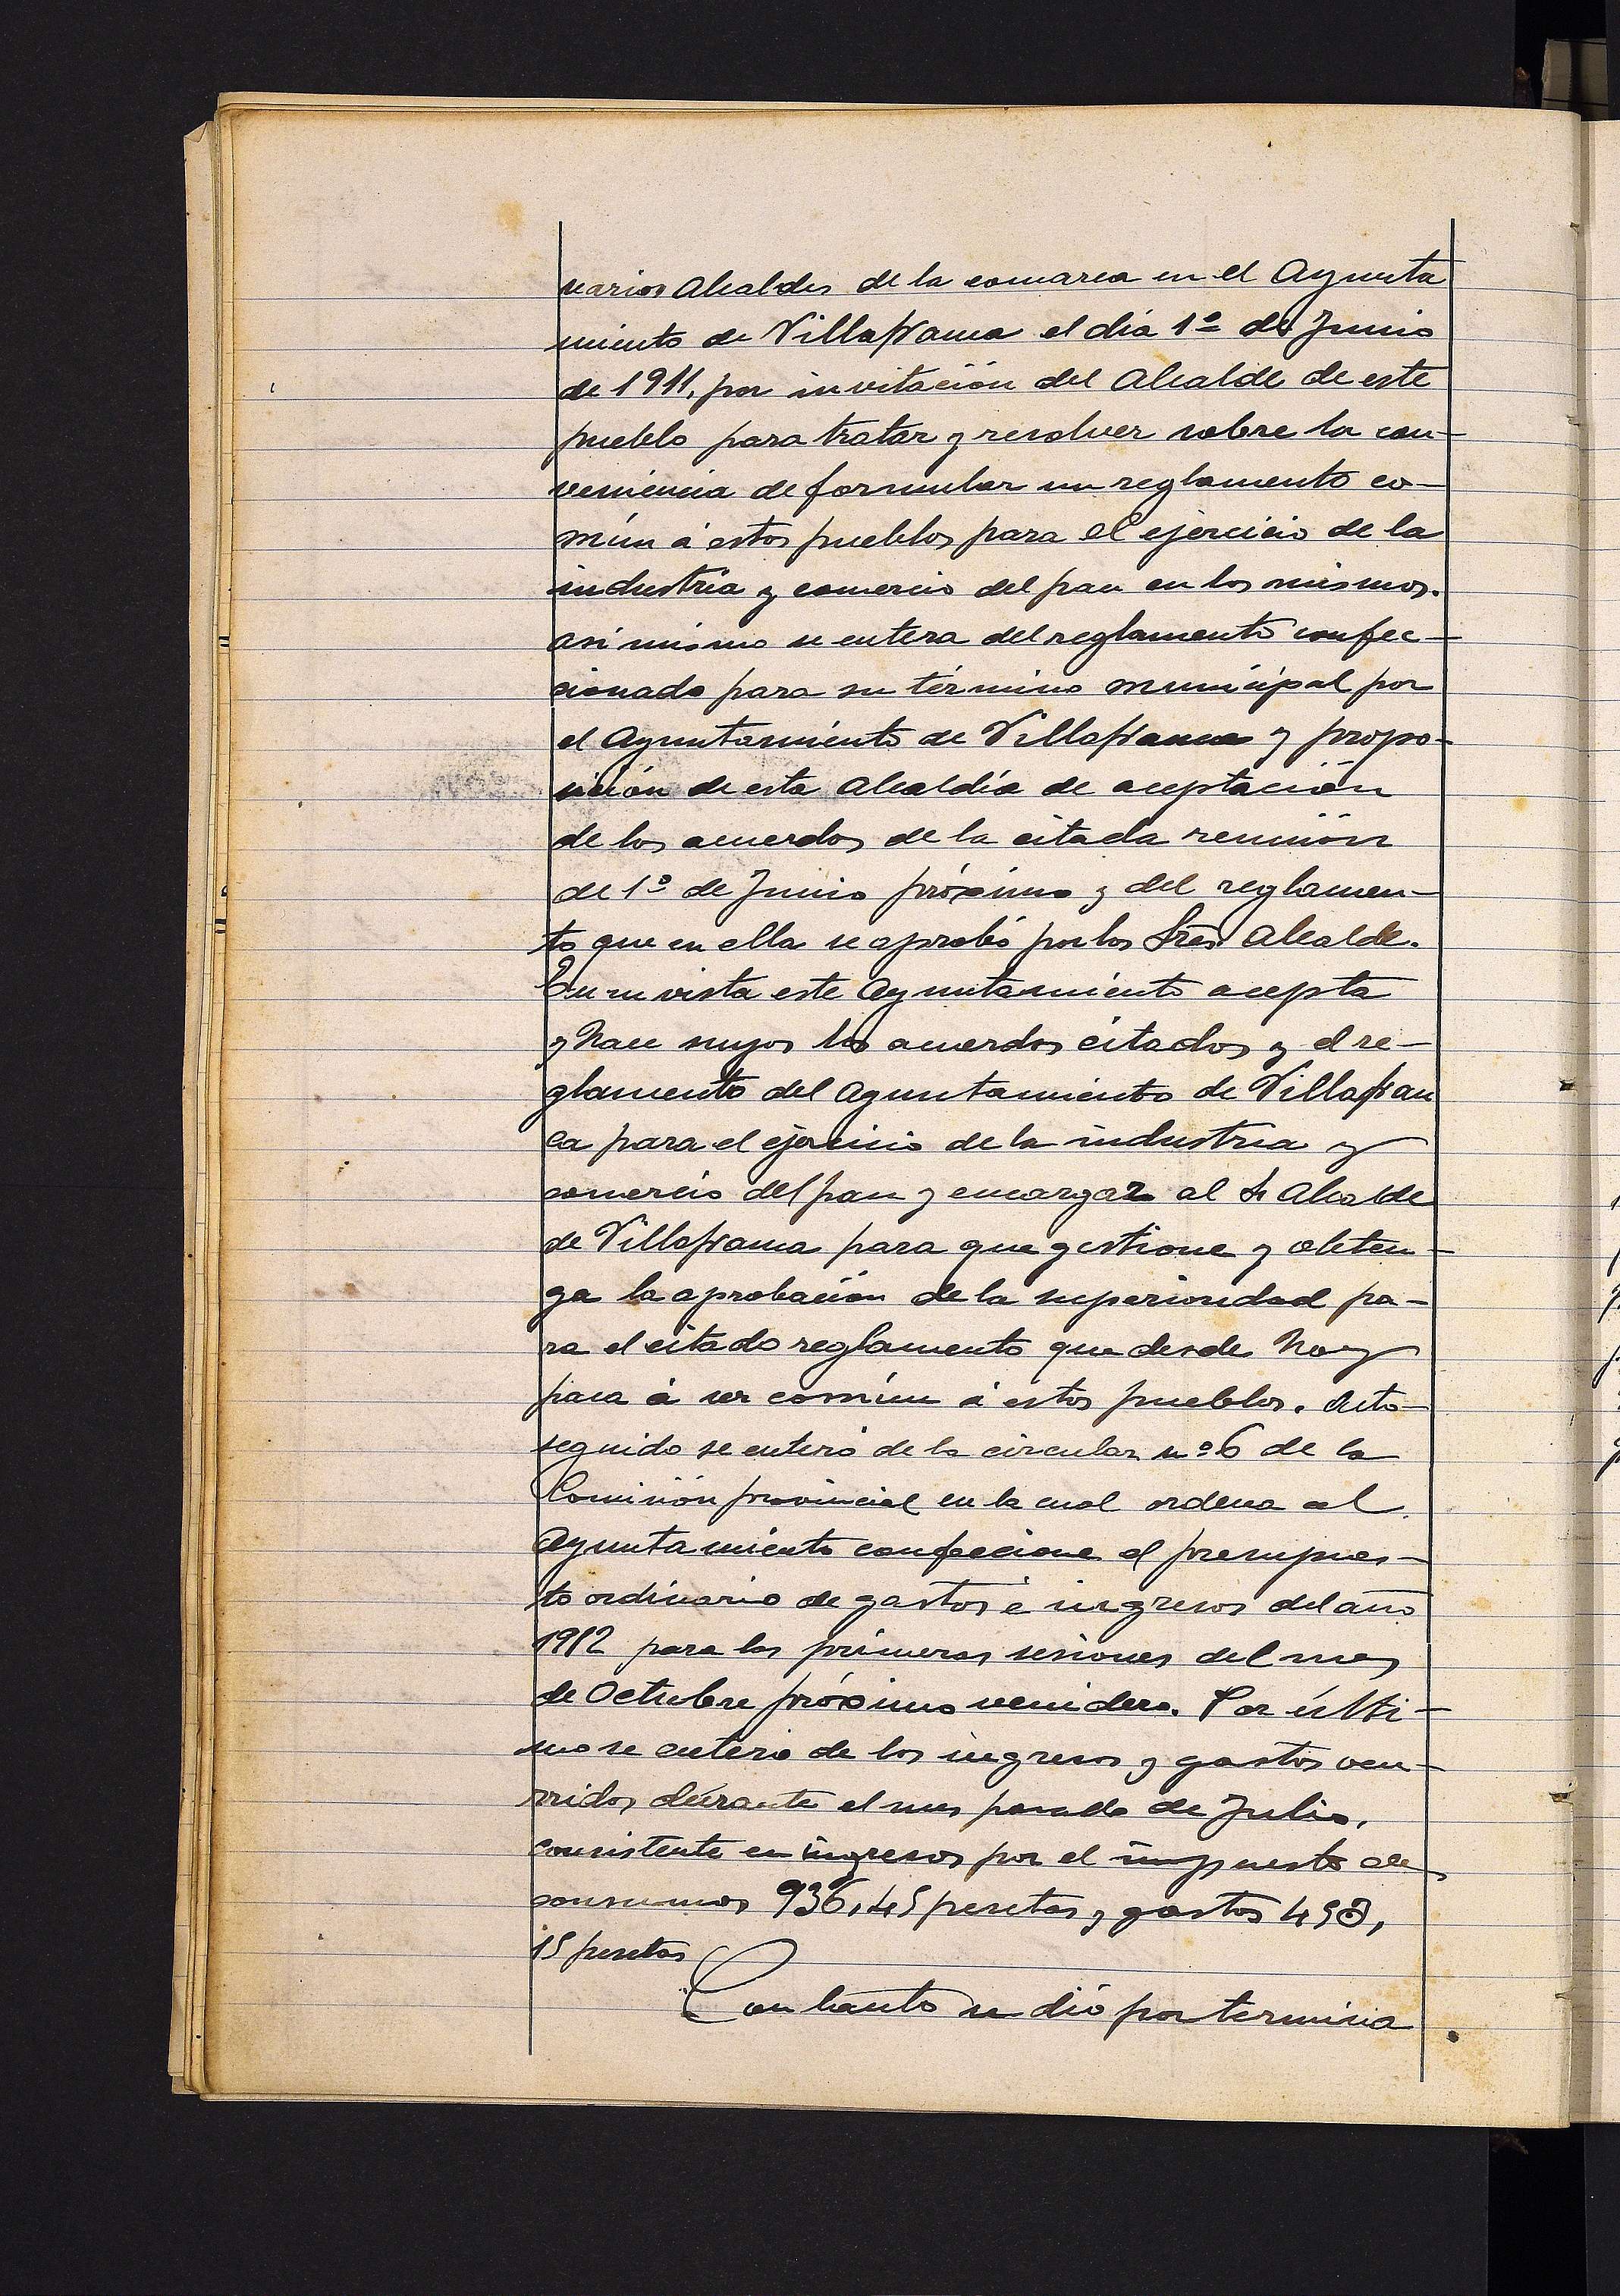 varios Alcaldes de la comarca en el Ayunta
miento de Villafranca el dia 1º de Junio
de 1911, por invitación del Alcalde de este
pueblo para tratar y resolver sobre la con-
veniencia de formular un reglamento co-
mún á estos pueblos para el ejercicio de la
industria y comercio del pan en los mismos.
asi mismo se entera del reglamento confec-
cionado para su término municipal por
el Ayuntamiento de Villafranca y propo-
sición de esta Alcaldía de aceptación
de los acuerdos de la citada reunión
de 1º de Junio próximo y del reglamen-
to que en ella se aprobó por los Sres. Alcalde.
En su vista este Ayuntamiento acepta
y hace suyos los acuerdos citados y el re-
glamento del Ayuntamiento de Villafran
ca para el ejercicio de la industria y
comercio del pan y encargar al Sr Alcalde
de Villafranca para que gestione y obten-
ga la aprobación de la superioridad pa-
ra el citado reglamento que desde hoy
pasa á ser común á estos pueblos. Acto
seguido se enteró de la circular nº 6 de la
Comisión provincial en la cual ordena al
Ayuntamiento confeccione el presupues-
to ordinario de gastos é ingresos del año
1912 para las primeras sesiones del mes
de Octubre próximo venidero. Por últi-
mo se enteró de los ingresos y gastos ocu-
rridos durante el mes pasado de Julio,
consistente en ingresos por el impuesto de
consumos 936,45 pesetas y gastos 458,
15 pesetas
Con tanto se dió por termina